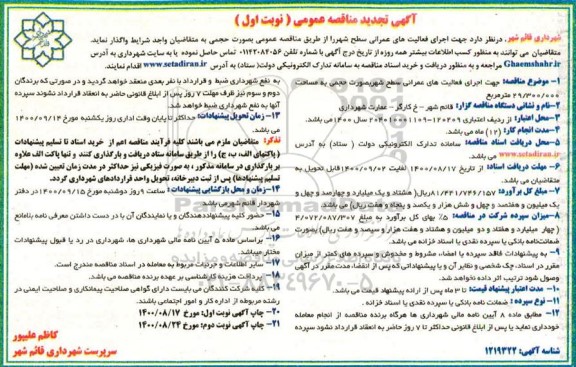 آگهی تجدید مناقصه عمومی ( نوبت اول )
شهرداری قائم شهر درنظر دارد جهت اجرای فعالیت های عمرانی سطح شهررا از طریق مناقصه عمومی بصورت حجمی به متقاضیان واجد شرایط واگذار نماید.
متقاضیان می توانند به منظور کسب اطلاعات بیشتر همه روزه از تاریخ درج آگهی با شماره تلفن ۰۱۱۴۲۰۸۴۰۵۶ تماس حاصل نموده یا به سایت شهرداری به آدرس
Ghaemshahr.ir مراجعه و به منظور دریافت و خرید اسناد مناقصه به سامانه تدارک الکترونیکی دولت(ستاد) به آدرس www.setadiran.ir اقدام نمایند.
۱- موضوع مناقصه: جهت اجرای فعالیت های عمرانی سطح شهربصورت حجمی به مساحت
۲۹/۳۰۰/۰۰۰ مترمربع
۲- نام و نشانی دستگاه مناقصه گزار: قائم شهر - خ کارگر - عمارت شهرداری
۳- محل اعتبار: از ردیف اعتباری
سال ۱۴۰۰ می باشد.
۴- مدت انجام کار: (۱۲) ماه می باشد.
۵- محل دریافت اسناد مناقصه: سامانه تدارک الکترونیکی دولت ( ستاد) به آدرس
www.setadiran.ir می باشد.
۶- مهلت دریافت اسناد: از تاریخ ۱۴۰۰/۰۸/۱۷ لغایت ۱۴۰۰/۰۹/۰۲ قابل تحویل به
متقاضیان می باشد.
۷- مبلغ کل برآورد: ۸۱/۴۴۱/۷۴۶/۱۵۷ ریال( هشتاد و یک میلیارد و چهارصد و چهل و
یک میلیون و هفتصد و چهل و شش هزار و یکصد و پنجاه و هفت ریال) می باشد
۸- میزان سپرده شرکت در مناقصه: ۵٪ بهای کل برآورد به مبلغ ۴/۰۷۲/۰۸۷/۳۰۷
( چهار میلیارد و هفتاد و دو میلیون و هشتاد و هفت هزار و سیصد و هفت ریال) بصورت
ضمانت‌نامه بانکی یا سپرده نقدی یا اسناد خزانه می باشد.
۹- به پیشنهادات فاقد سپرده یا امضاء، مشروط و مخدوش و سپرده های کمتر از میزان
مقرر در اسناد، چک شخصی و نظایر آن و یا پیشنهاداتی که پس از انقضا، مدت مقرر در آگهی
وصول شود ترتیب اثر داده نخواهد شد.
۱۰- مدت اعتبار پیشنهاد قیمت: تا ۳ ماه پس از ارائه پیشنهاد قیمت می باشد.
۱۱- نوع سپرده : ضمانت نامه بانکی یا سپرده نقدی یا اسناد خزانه .
۱۲- مطابق ماده ۸ آیین نامه مالی شهرداری ها هرگاه برنده مناقصه از انجام معامله
خودداری نماید یا پس از ابلاغ قانونی حداکثر تا ۷ روز حاضر به انعقاد قرارداد نشود سپرده
به نفع شهرداری ضبط و قرارداد با نفر بعدی منعقد خواهد گردید و در صورتی که برندگان
دوم و سوم نیز ظرف مهلت ۷ روز پس از ابلاغ قانونی حاضر به انعقاد قرارداد نشوند سپرده
آنها به نفع شهرداری ضبط خواهد شد.
۱۳- زمان تحویل پیشنهادات: حداکثر تا پایان وقت اداری روز یکشنبه مورخ ۱۴۰۰/۰۹/۱۴
می باشد.
تذکر: متقاضیان ملزم می باشند کلیه فرآیند مناقصه اعم از خرید اسناد تا تسلیم پیشنهادات
(پاکتهای الف، ب، ج) را از طریق سامانه ستاد دریافت و بارگذاری کنند و تنها پاکت الف علاوه
بر بارگذاری در سامانه مذکور ، به صورت فیزیکی نیز حداکثر در مدت زمان تعیین شده (مهلت
تسلیم پیشنهادها) پس از ثبت دبیرخانه، تحویل واحد قراردادهای شهرداری گردد.
۱۴- زمان و محل بازگشایی پیشنهادات: ساعت ۹ روز دوشنبه مورخ ۱۴۰۰/۰۹/۱۵ در دفتر
شهردار قائم شهر می باشد.
۱۵- حضور کلیه پیشنهاددهندگان و یا نمایندگان آن با در دست داشتن معرفی نامه بلامانع
می باشد.
۱۶- براساس ماده ۵ آیین نامه مالی شهرداری ها، شهرداری در رد یا قبول پیشنهادات
مختار میباشد.
۱۷- سایر اطلاعات و جزئیات مربوط به معامله در اسناد مناقصه مندرج است.
۱۸- پرداخت هزینه کارشناسی بر عهده برنده مناقصه می باشد.
۱۹- کلیه شرکت کنندگان می بایست دارای گواهی صلاحیت پیمانکاری و صلاحیت ایمنی در
رشته مربوطه از اداره کار و امور اجتماعی باشند.
۲۰- چاپ آگهی نوبت اول: مورخ ۱۴۰۰/۰۸/۱۷
۲۱- چاپ آگهی نوبت دوم: مورخ ۱۴۰۰/۰۸/۲۴
کاظم علیپور
سرپرست شهرداری قائم شهر
شناسه آگهی: ۱۲۱۹۳۲۲